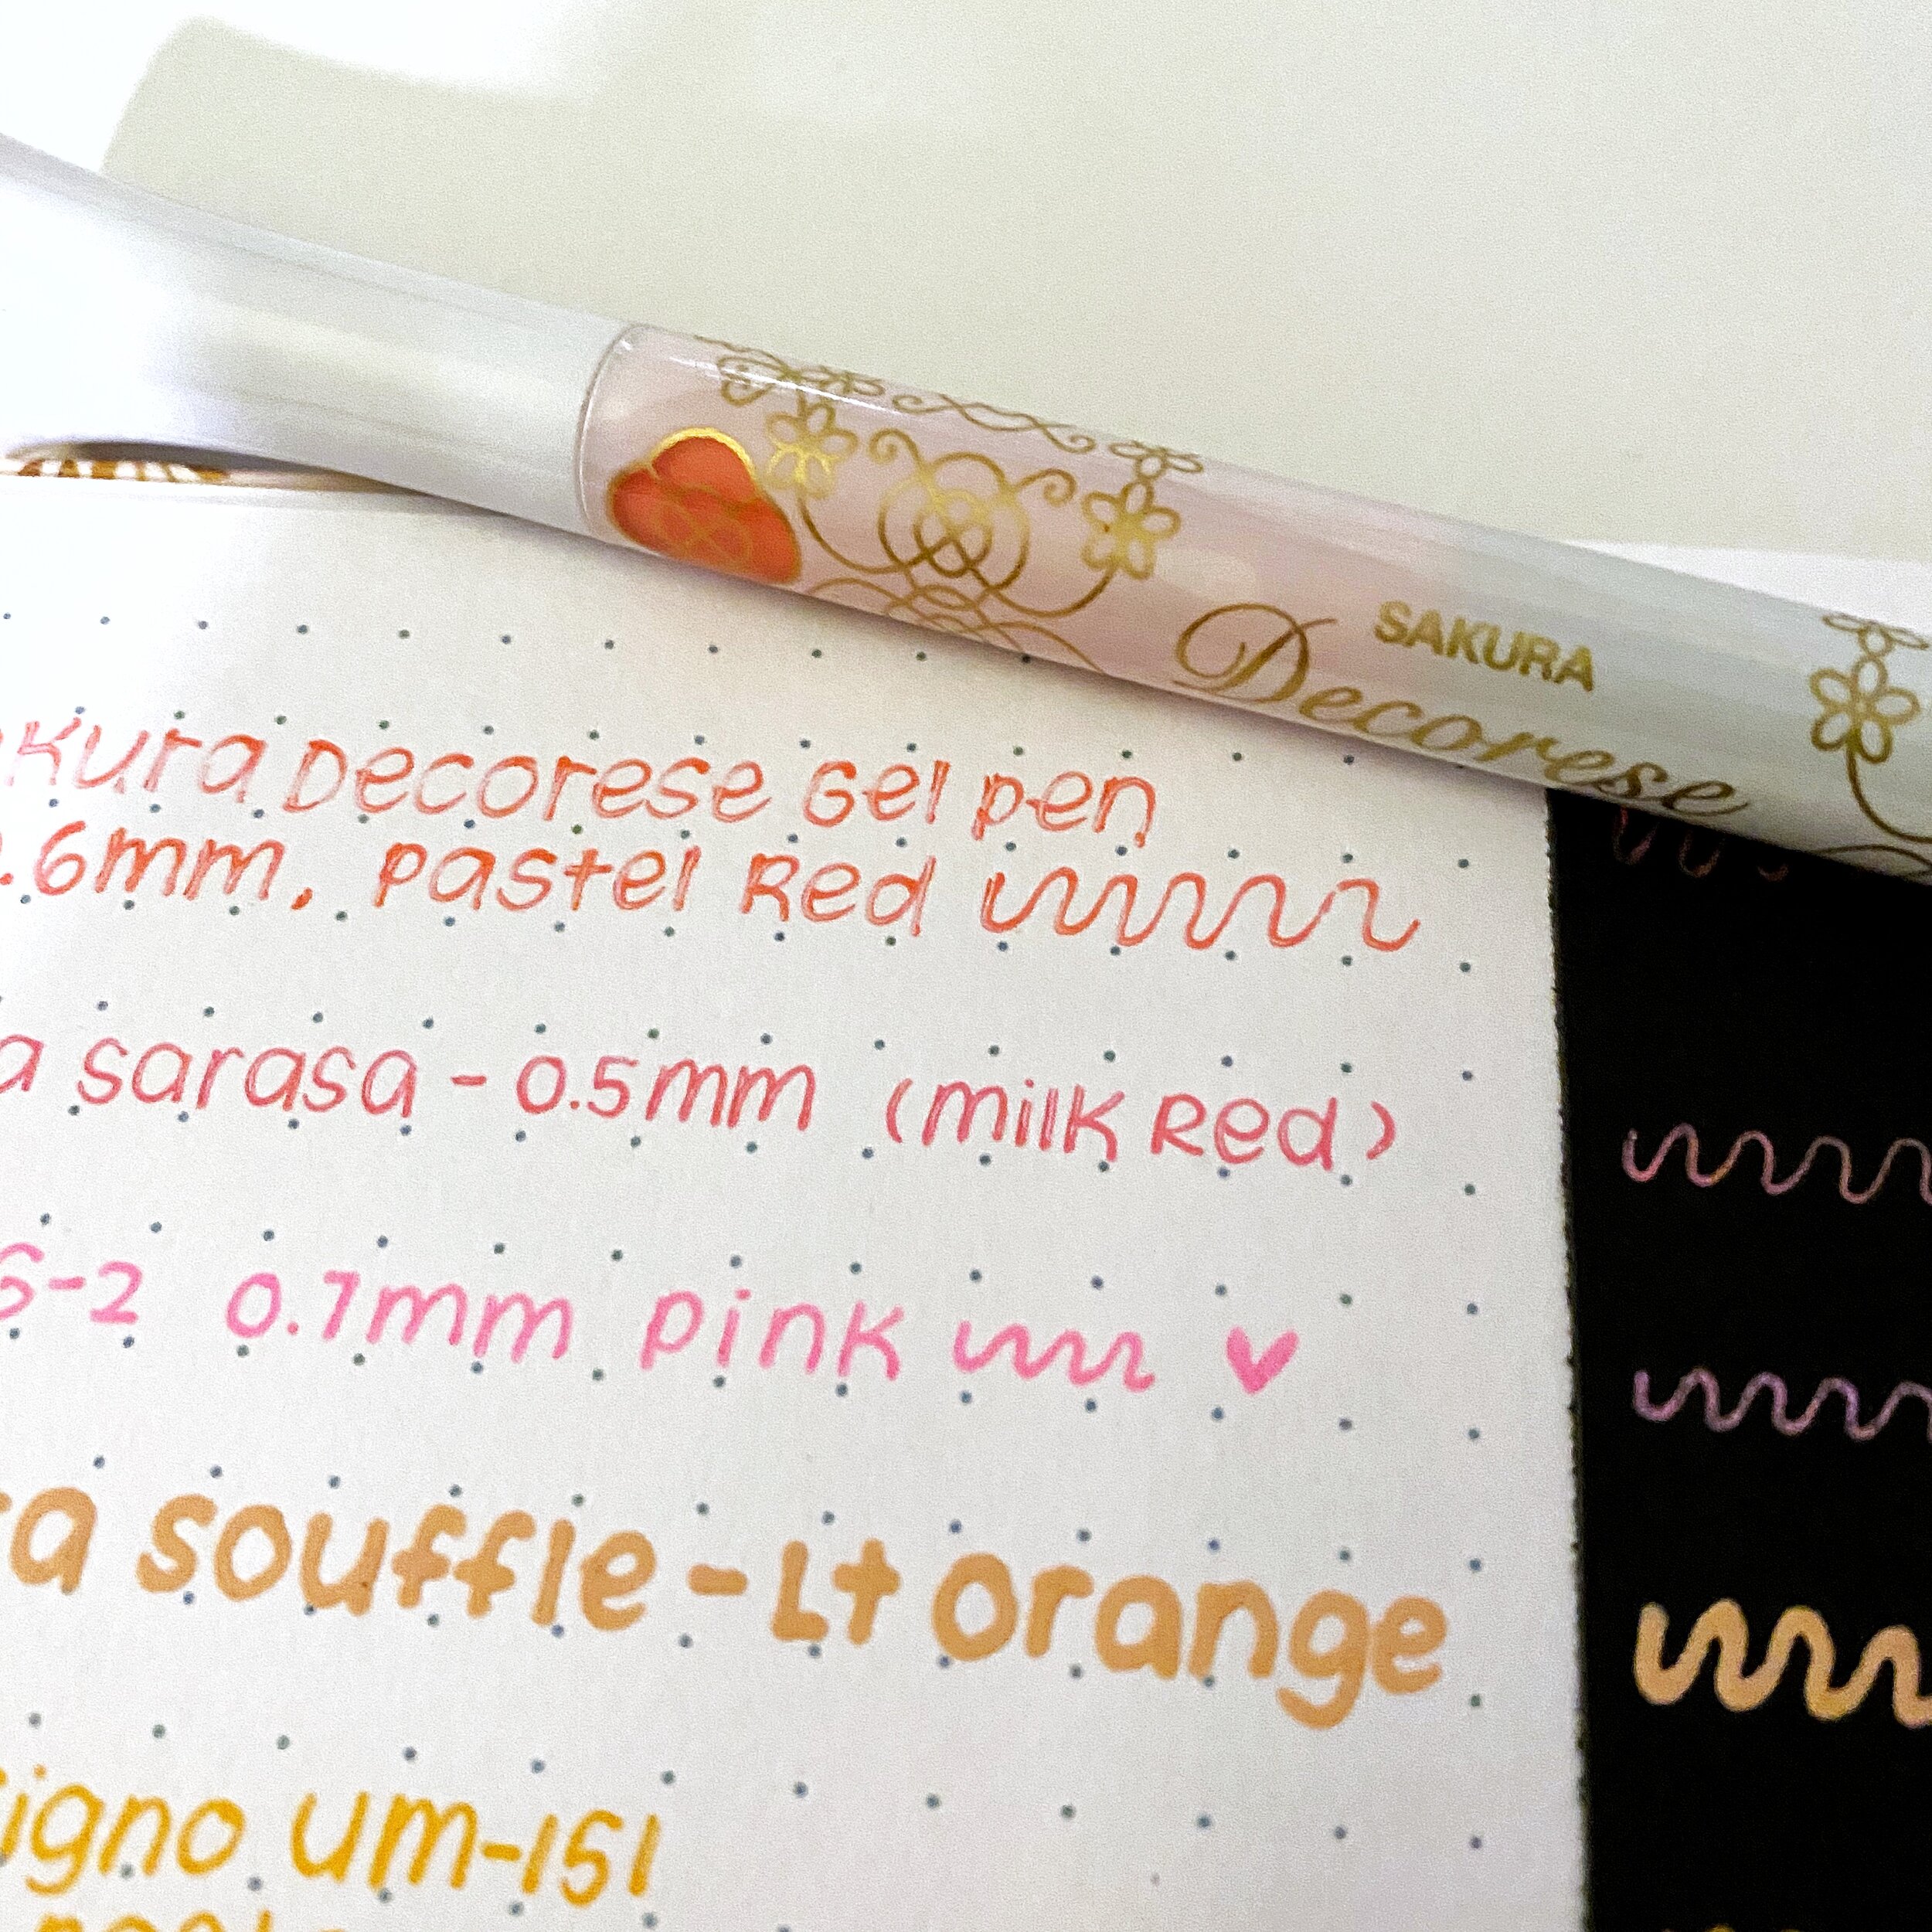 SAKURA
Decorese
akura Decorese Gel pen
0.6mm. Pastel Red
a sarasa - 0.5mm (Milk Red)
G-2 0.7mm pink
ra souffle - Lt orange
signo um-151